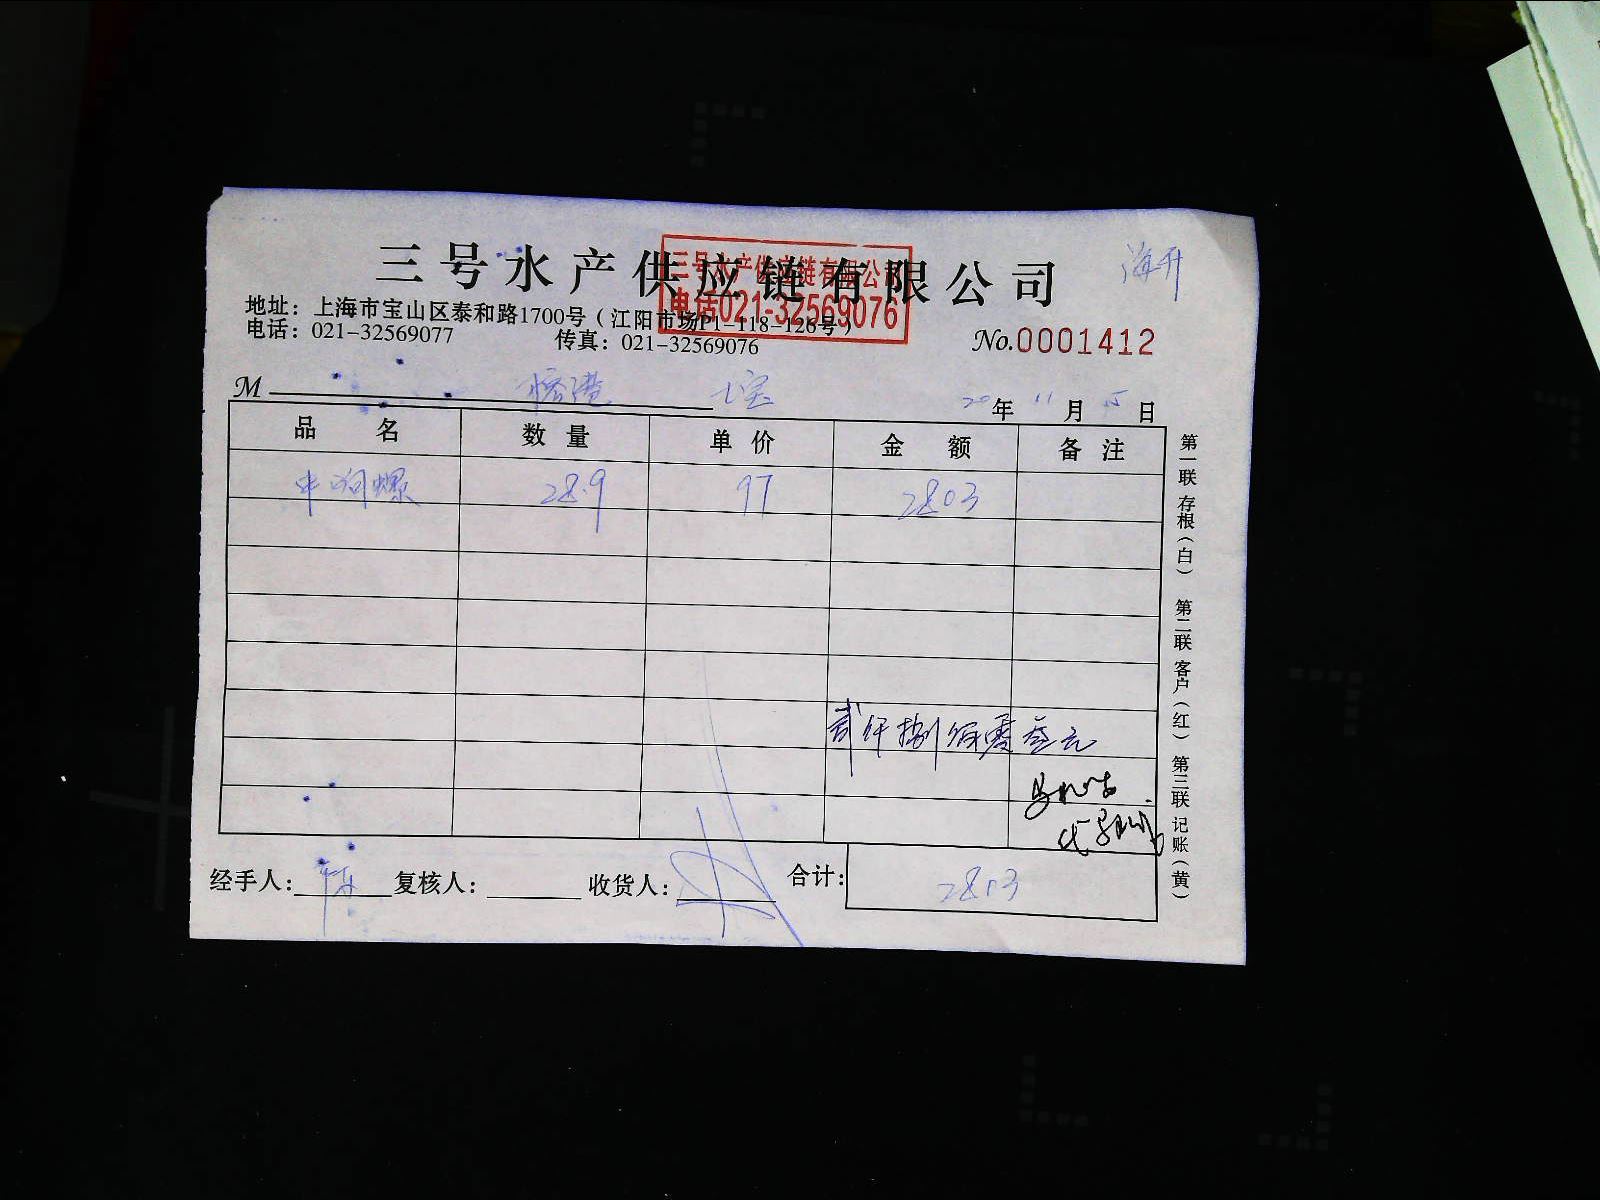 三号水产供应链有限公司
三号水产供应链有限公司
电话021-32569076
海升
地址：上海市宝山区泰和路1700号（江阳市场P1-118-126号）
电话：021-32569077 传真：021-32569076
No.0001412
M 榕港 七宝 20年11月15日
品名 数量 单价 金额 备注
牛泃螺 28.9 97 2803
贰仟捌佰零叁元
经手人： 复核人： 收货人： 合计：2803
第一联 存根（白） 第二联 客户（红） 第三联 记账（黄）